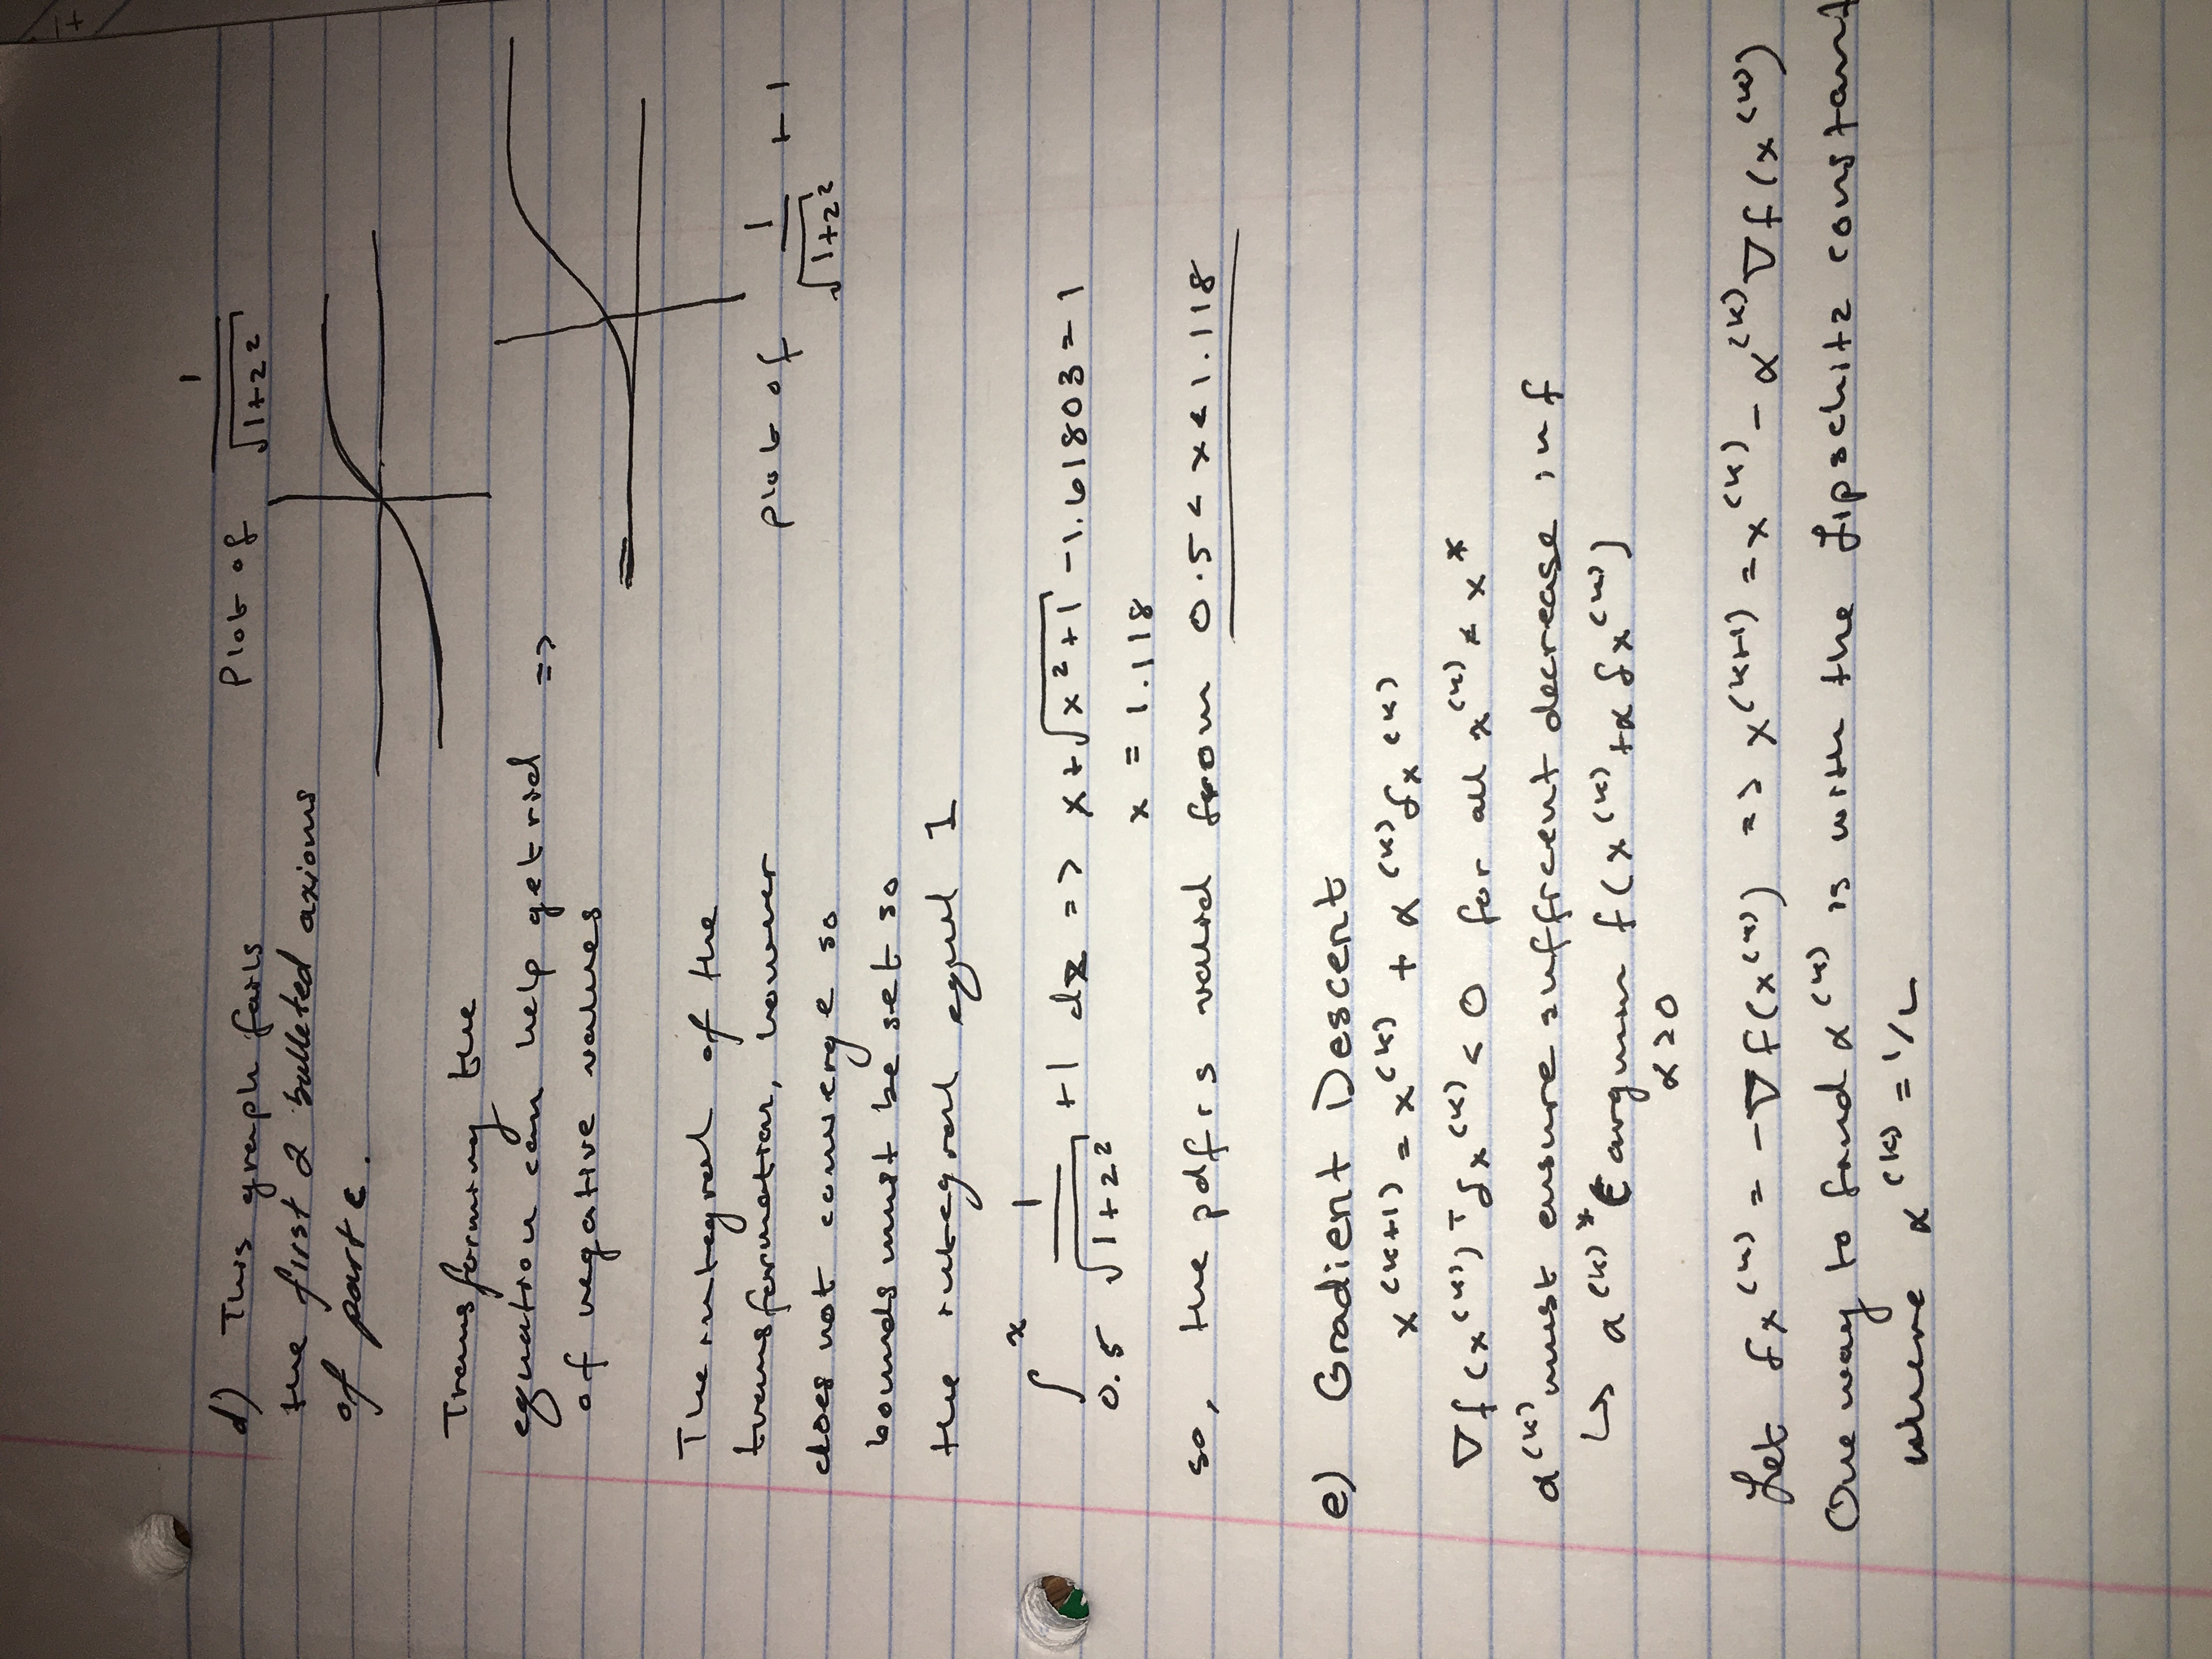 d) This graph fails
the first 2 bulleted axioms
of part c.
Plot of 1/√(1+z²)
Transforming the
equation can help get rid =>
of negative values
The integral of the
transformation, however
does not converge so
bounds must be set so
the integral equal 1
plot of 1/√(1+z²) + 1
∫_{0.5}^{x} 1/√(1+z²) +1 dz => x+√(x²+1) -1.61803 = 1
x = 1.118
so, the pdf is valid from 0.5 < x < 1.118
e) Gradient Descent
x^(k+1) = x^(k) + α^(k) δx^(k)
∇f(x^(k))^T δx^(k) < 0 for all x^(k) ≠ x*
α^(k) must ensure sufficent decrease in f
↳ α^(k)* ∈ argmin f(x^(k) + α δx^(k))
α≥0
Let δx^(k) = -∇f(x^(k)) => x^(k+1) = x^(k) - α^(k) ∇f(x^(k))
One way to find α^(k) is with the Lipschitz constant
where α^(k) = 1/L